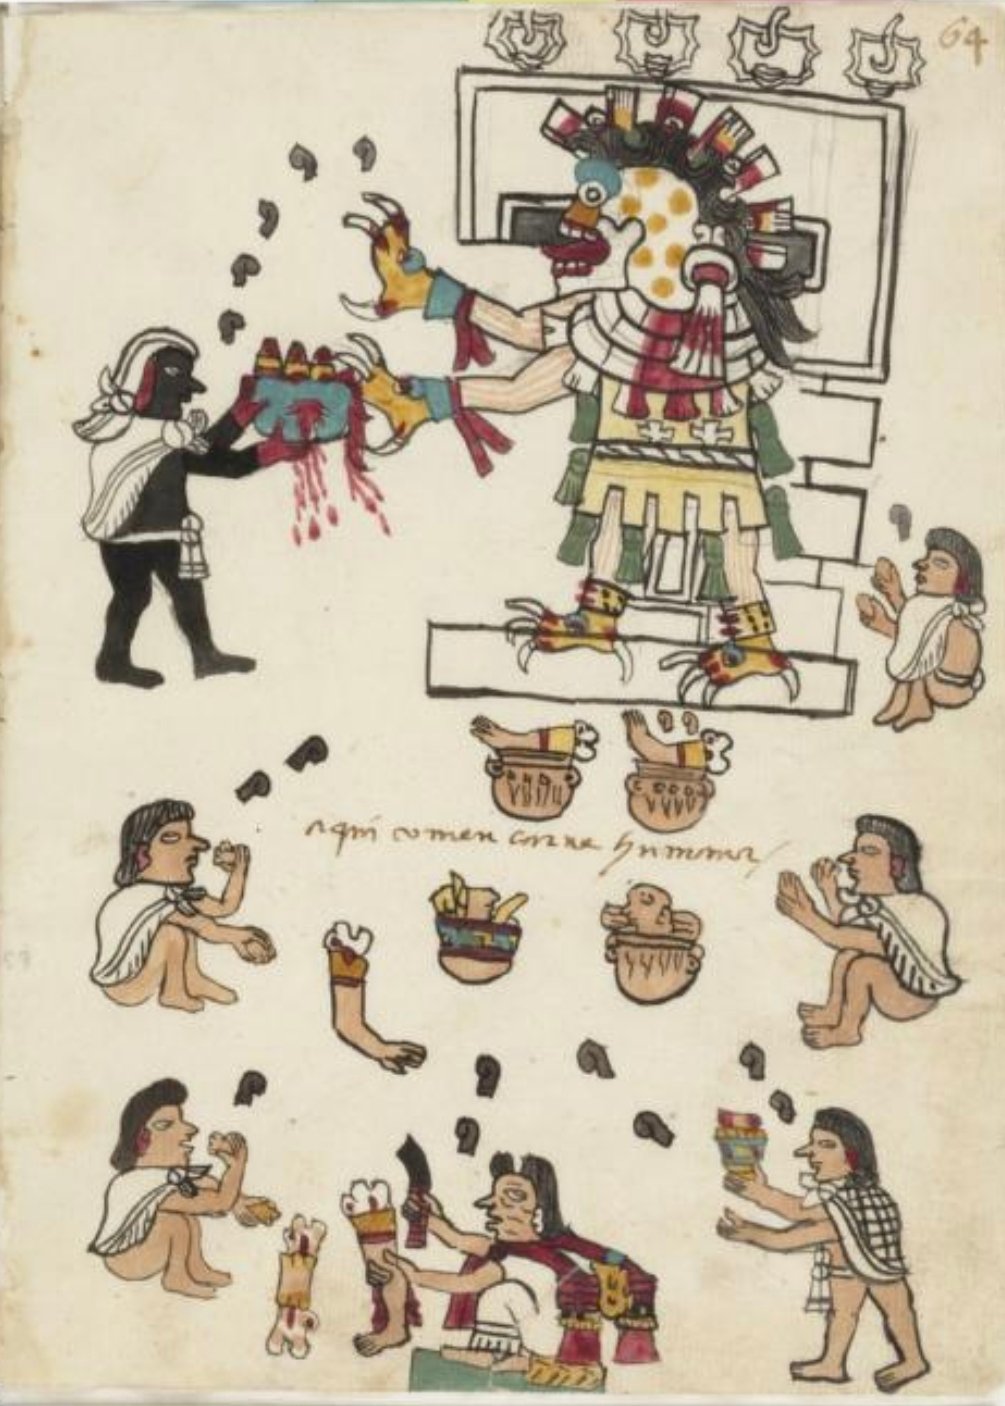 64
aqui comen carne humana